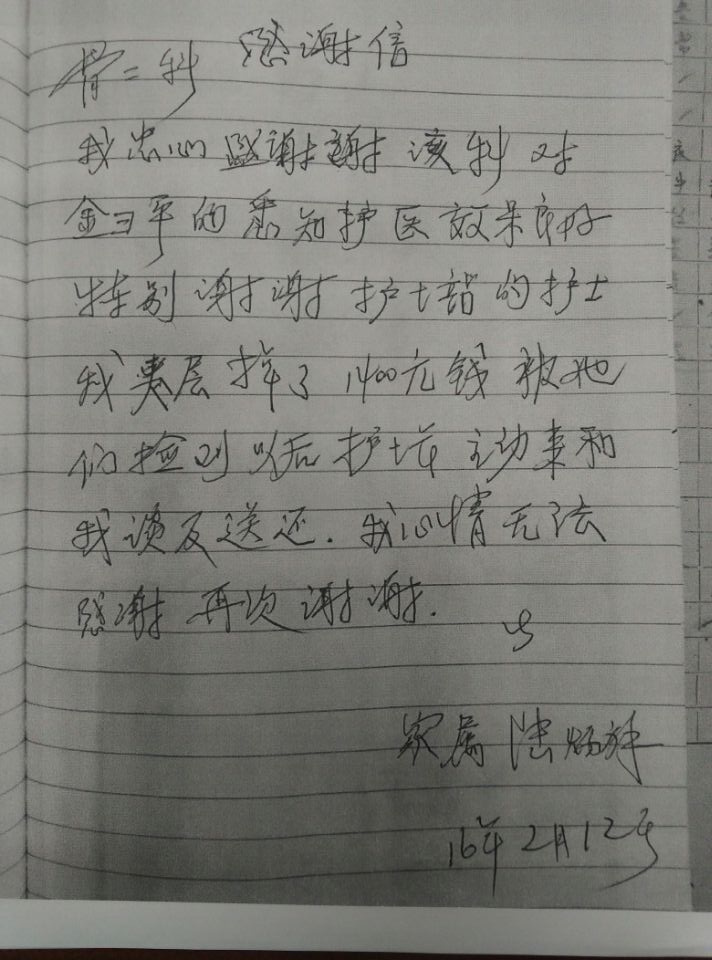 感谢信
骨二科
我忠心感谢谢该科对
金彐平的悉知护医效果良好
特别谢谢护士站的护士
我娄层掉了1400元钱被她
们捡到以后护士 主动来和
我谈及送还.我心情无法
感谢再次谢谢.
家属 陆炳祥
16年2月12号